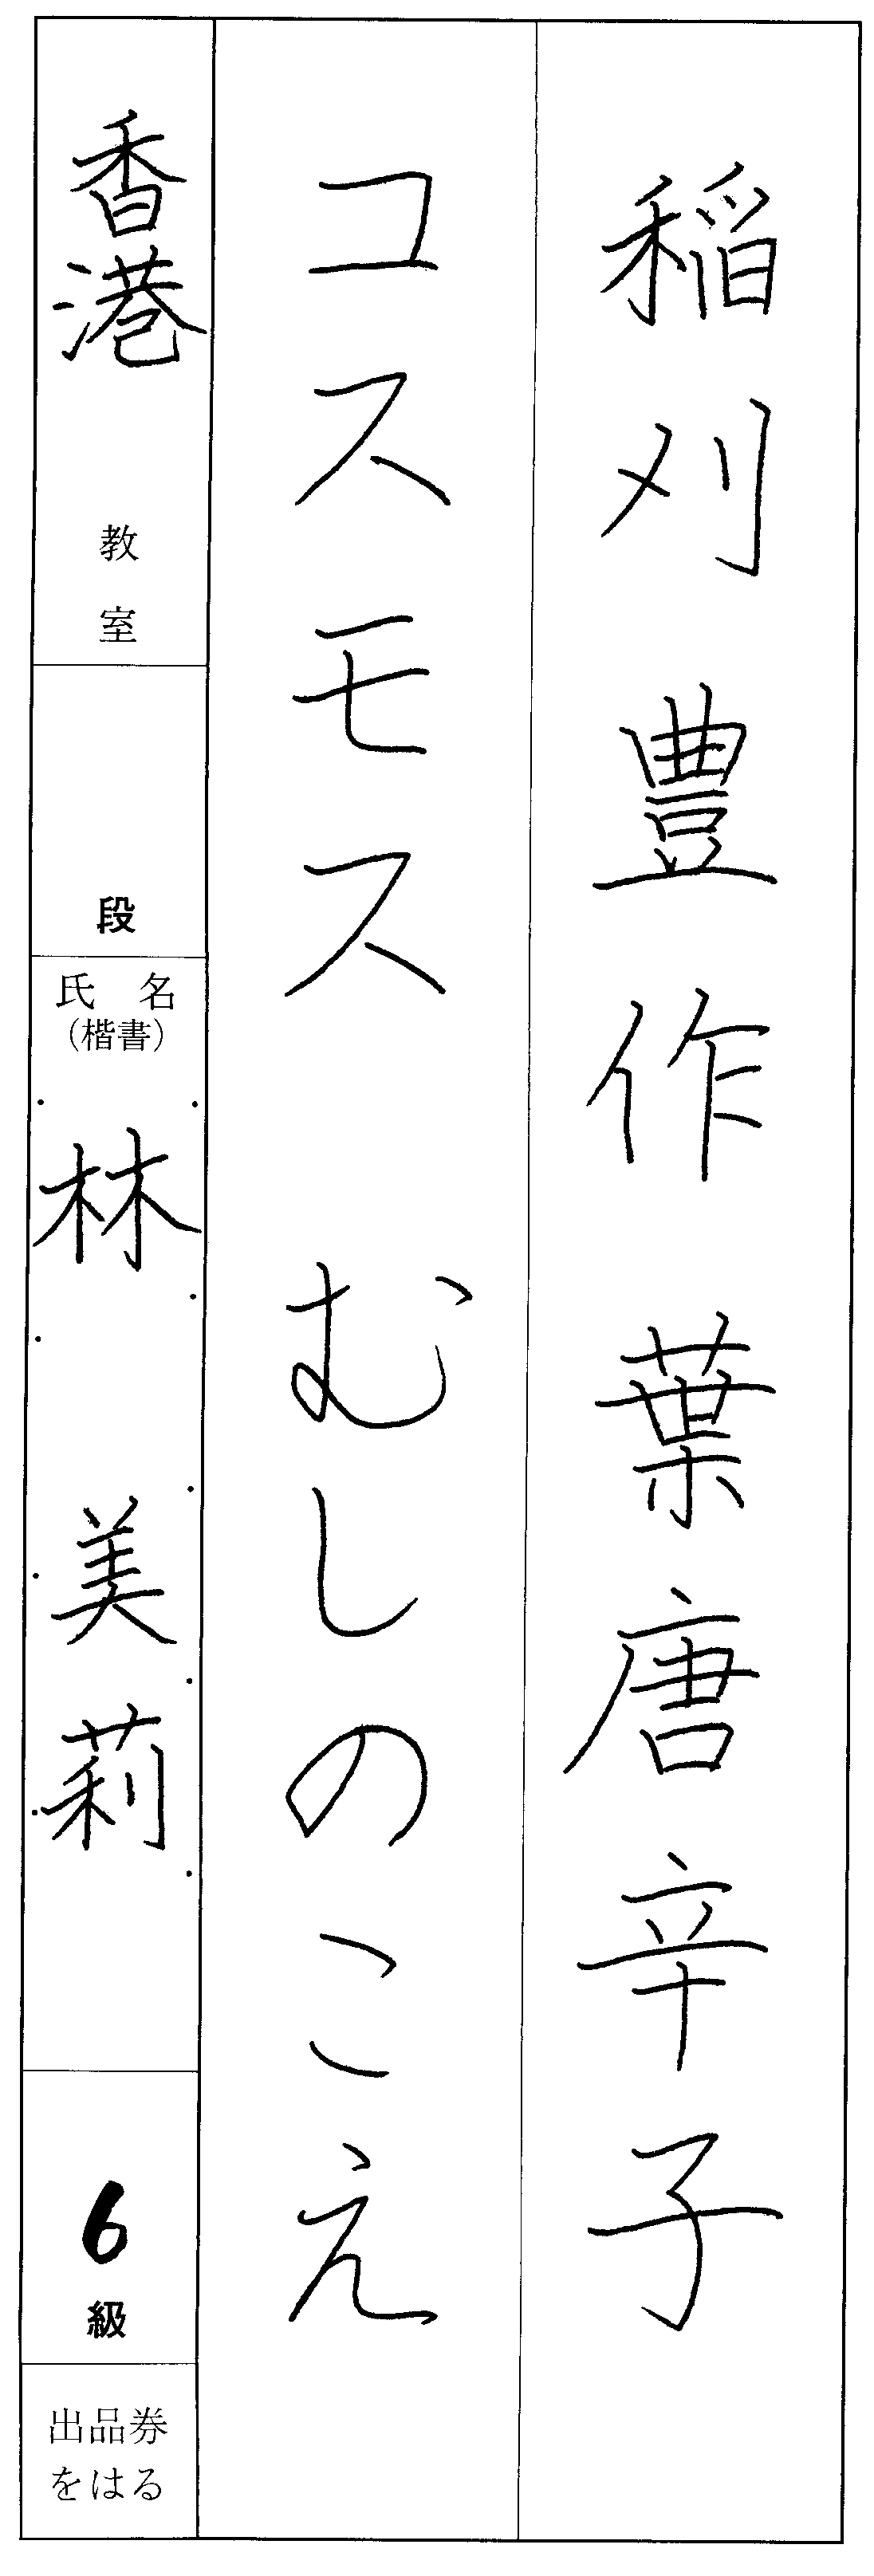 稲刈豊作葉唐辛子
コスモス むしのこえ
香港 教室
段
氏名
(楷書)
林 美莉
6級
出品券
をはる